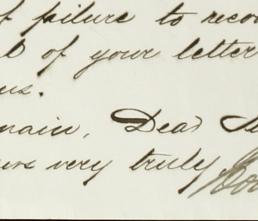 f failure to reco
l of your letter
us.
main, Dear Si
urs very truly